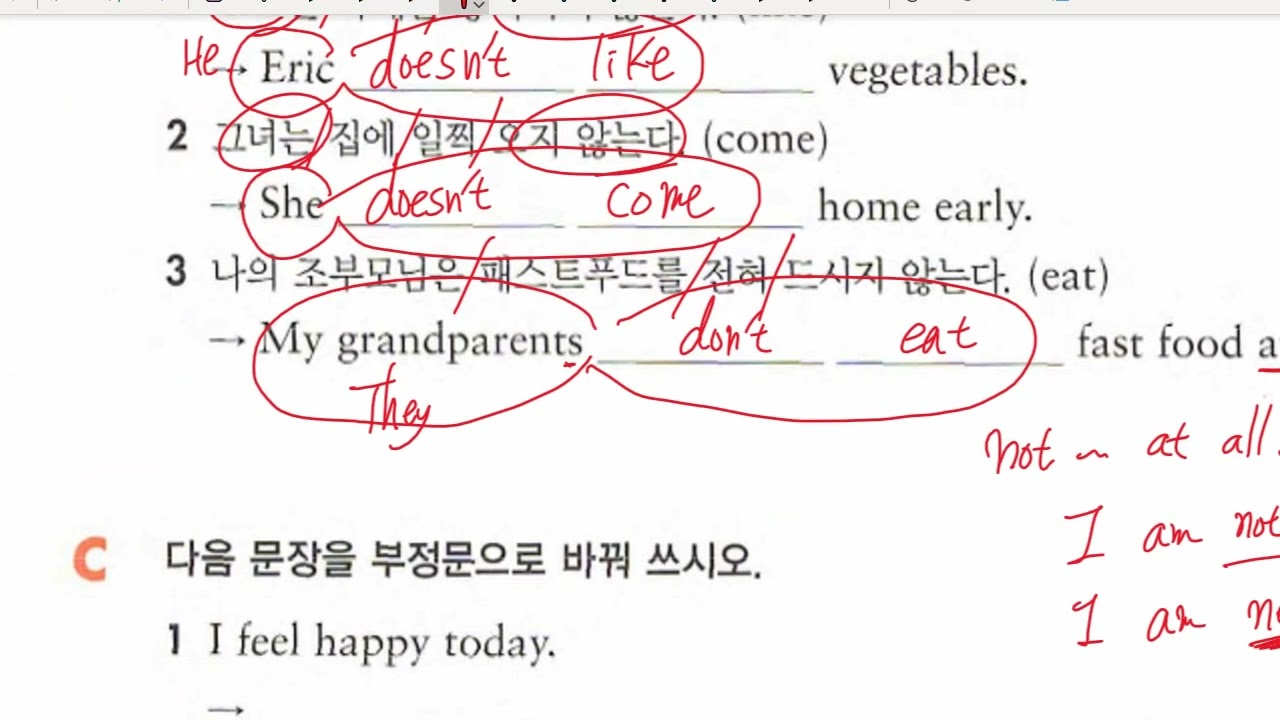 He → Eric doesn't like vegetables.
2 그녀는 집에 일찍 오지 않는다. (come)
→ She doesn't come home early.
3 나의 조부모님은 패스트푸드를 전혀 드시지 않는다. (eat)
→ My grandparents don't eat fast food a
They
not ~ at all.
C 다음 문장을 부정문으로 바꿔 쓰시오.
I am not
1 I feel happy today.
I am no
→